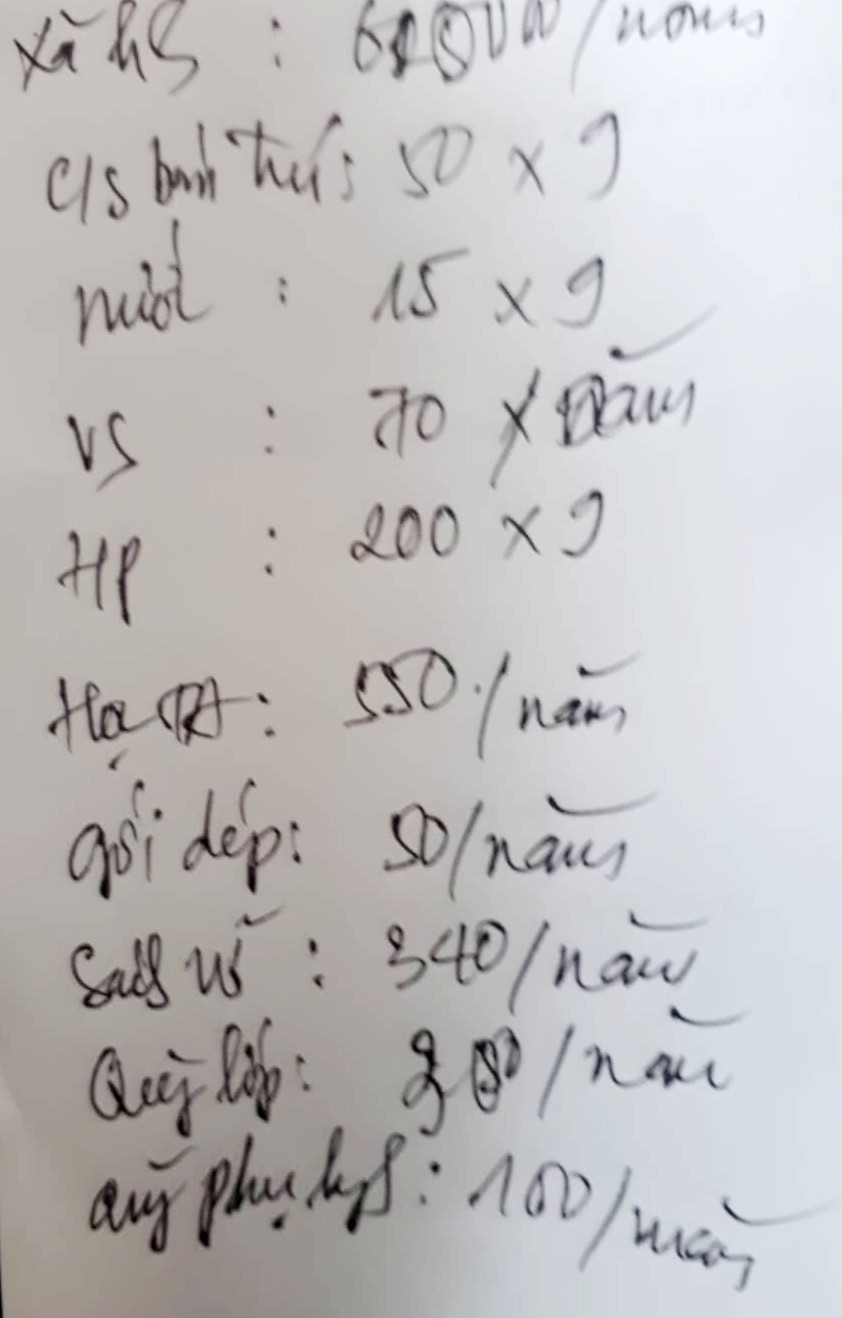 Xã hS : /năm
C/s bán trú: 50 x 9
nước : 15 x 9
VS : 70 x năm
HP : 200 x 9
Họ : 550./năm
gối dép: 50/năm
Sách vở : 340/năm
Quỹ lớp: /năm
quỹ phụ : 100/năm